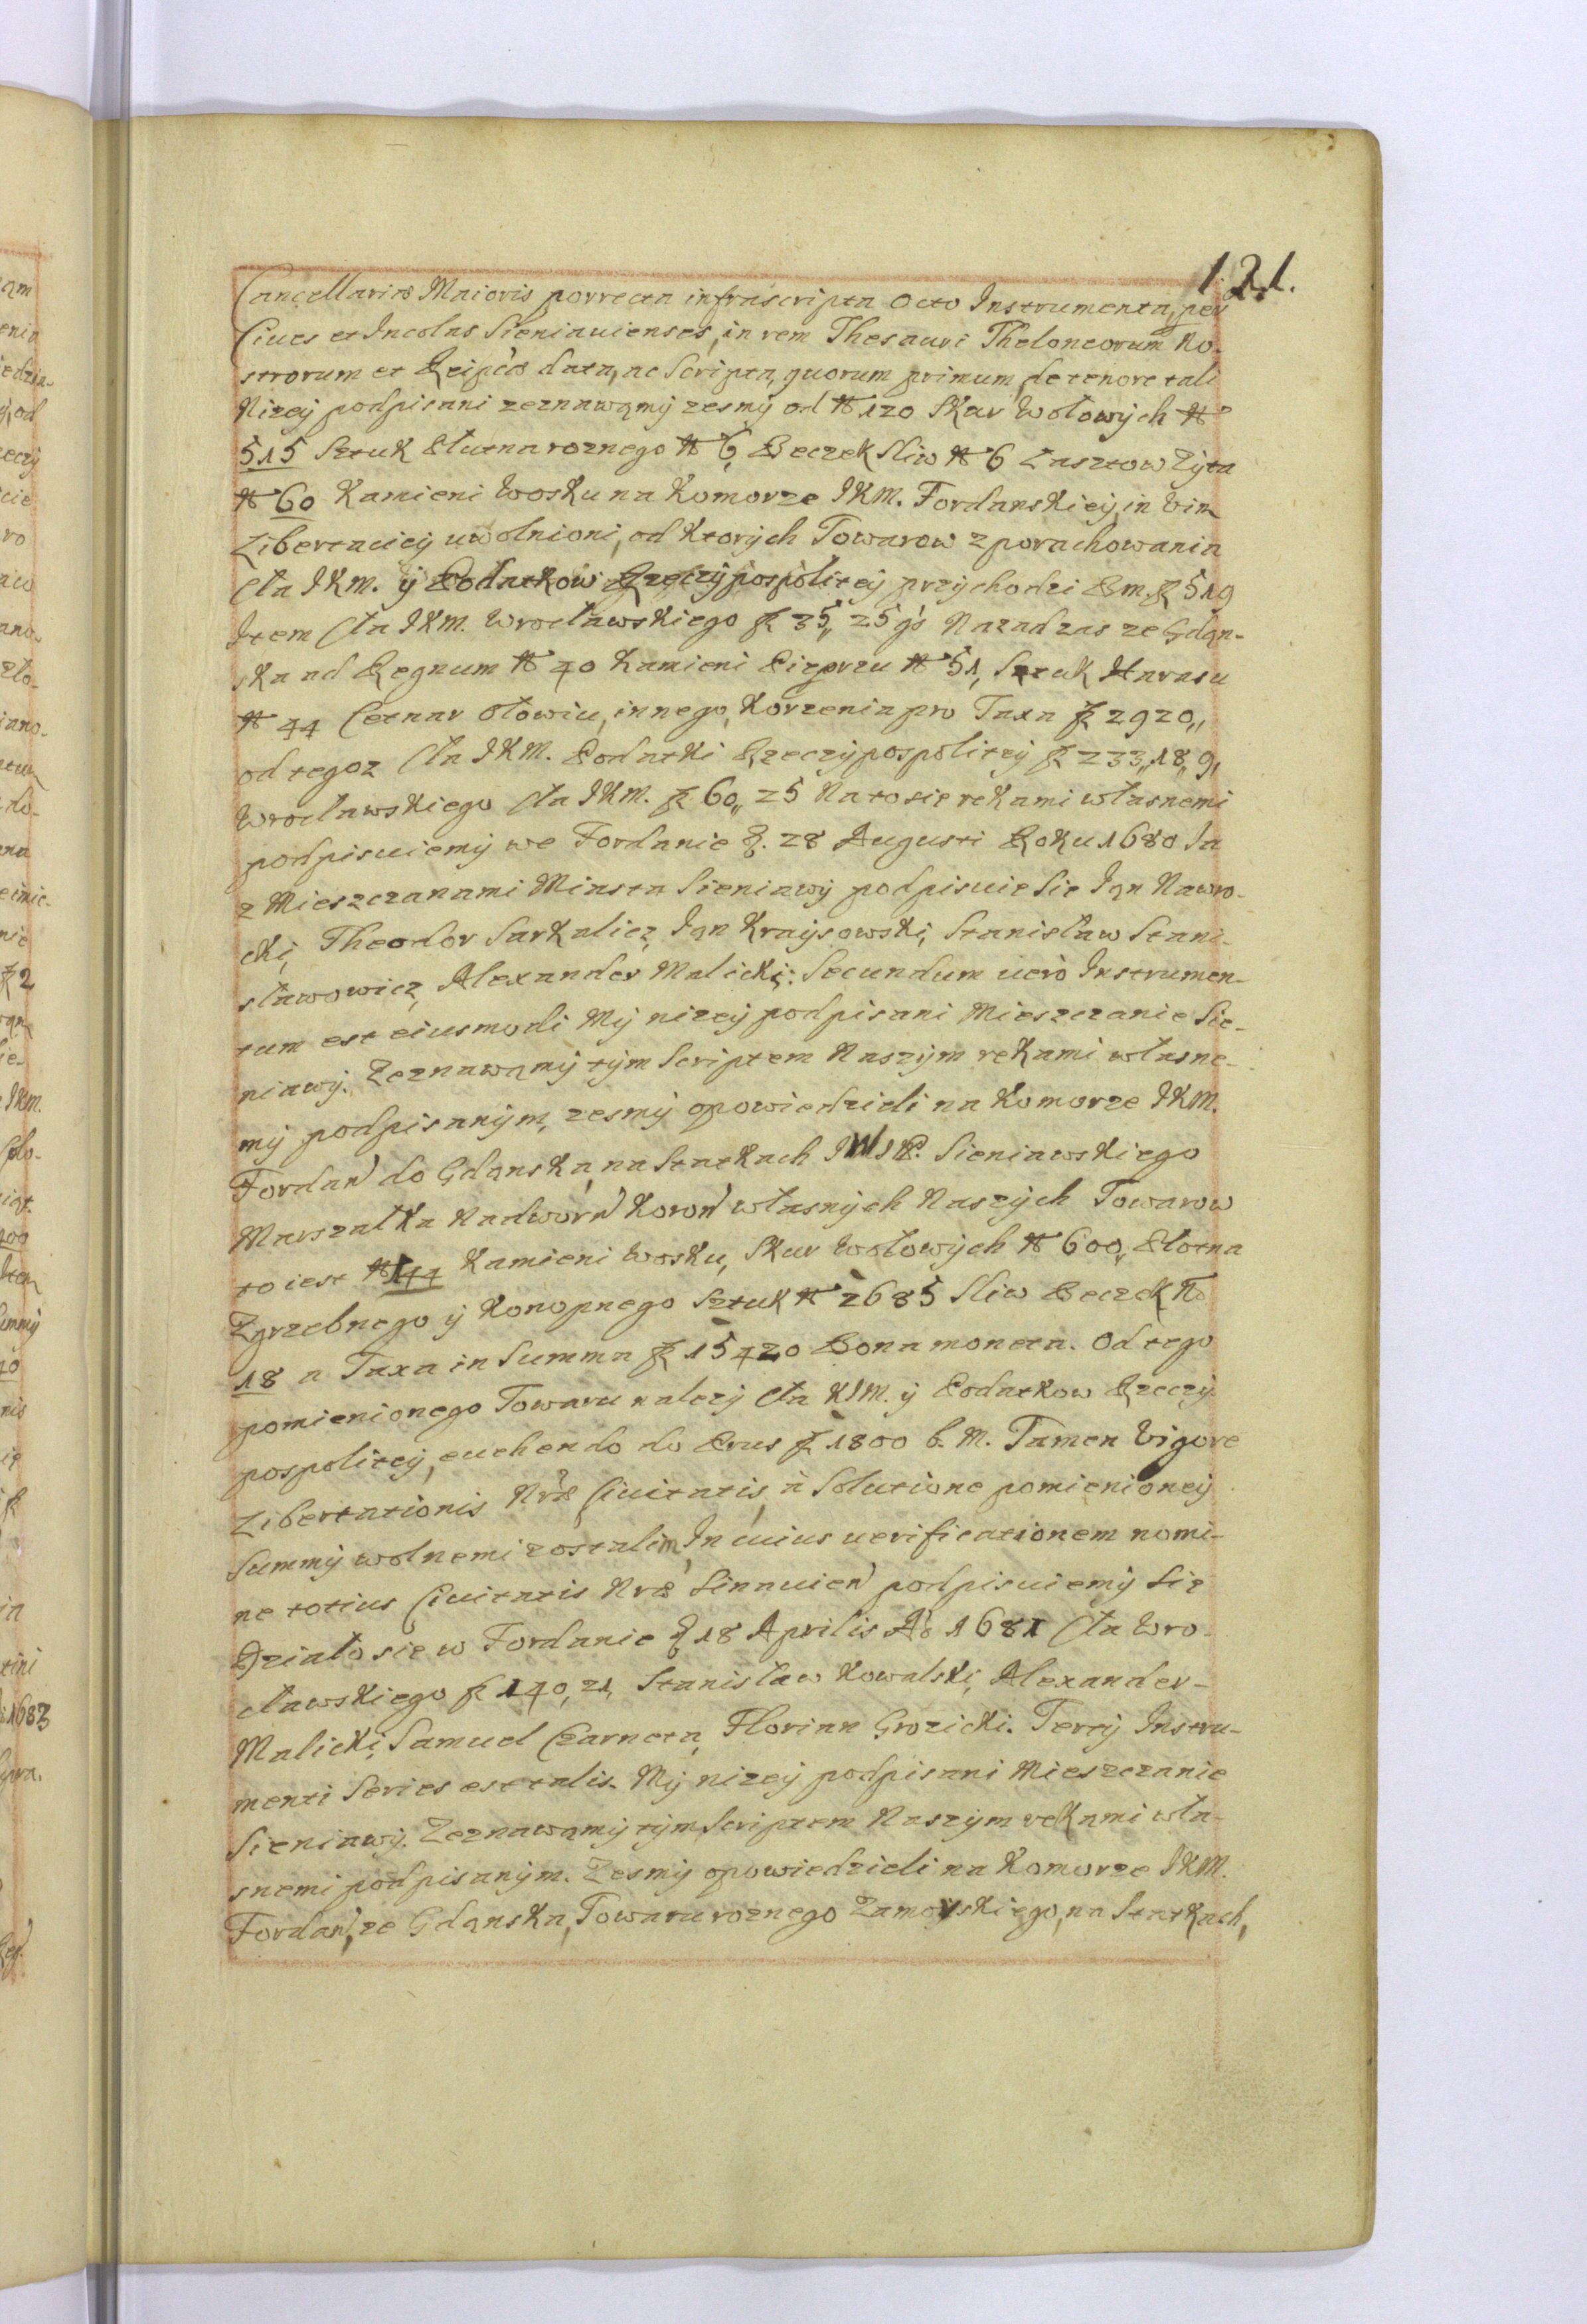 121.
Cancellariæ Maioris porrecta infrascripta Octo Instrumenta, per
Ciues et Incolas Sieniauienses, in rem Thesauri Theloneorum No-
strorum et Reipcæ data, ac Scripta, quorum primum de tenore tali
Nizey podpisani zeznawamÿ zesmÿ od № 120 Skur Wołowÿch №
515 Sztuk Płutna roznego № 6, Beczek Sliw № 6 Lasztow Zÿta
№ 60 Kamieni Wosku na Komorze JKM. Fordanskieÿ, in vim
Libertacieÿ uwolnioni, od Ktorÿch Towarow z porachowania
Cła JKM. ÿ Podatkow Rzeczÿpospoliteÿ przÿchodzi Bm. f 519
Item Cła JKM. Wrocławskiego f 35,, 25 gs Nazad zas ze Gdąn-
ska ad Regnum № 40 Kamieni Pieprzu № 51, Sztuk Harasu
№ 44 Cetnar Ołowiu, innego, Korzenia pro Taxa f 2920,,
od tegoz Cła JKM. Podatki Rzeczÿpospoliteÿ f 233,,18,,9,
Wrocławskiego Cła JKM. f 60,, 25 Na to sie rekami własnemi
podpisuiemÿ we Fordanie D. 28 Augusti Roku 1680 Ja
z Mieszczanami Miasta Sieniawÿ podpisuie Sie Jąn Nawro-
cki, Theodor Sarkalicz, Jąn Kraÿsowski, Stanisław Stani-
sławowicz, Alexander Malicki: Secundum uerò Instrumen-
tum est eiusmodi Mÿ nizeÿ podpisani Mieszczanie Sie-
niawÿ. Zeznawąmÿ tÿm Scriptem Naszÿm rekami własne-
mÿ podpisanÿm, zesmÿ opowiedzieli na Komorze JKM.
Fordan do Gdąnska, na Statkach Sieniawskiego
Marszałka Nadworn Koron własnÿch Naszÿch Towarow
to iest № 144 Kamieni Wosku, Skur Wołowÿch № 600,, Płotna
Zgrzebnego ÿ Konopnego Sztuk № 2685 Sliw Beczek №
18 a Taxa in Summa f 15420 Bona moneta. Od tego
pomienionego Towaru nalezÿ Cła KJM. ÿ Podatkow Rzeczÿ-
pospoliteÿ, euehendo do Prus f 1800 b. M. Tamen Vigore
Libertationis Nræ Ciuitatis, à Solutione pomienioneÿ
Summÿ wolnemi zostalim, In cuius uerificationem nomi-
ne totius Ciuitatis Nræ Sinauien podpisuiemÿ Sie
Działo sie w Fordanie D 18 Aprilis Aō 1681 Cła Wro-
cławskiego f 140, 21, Stanisław Kowalski, Alexander-
Malicki, Samuel Czarneta, Florian Grozicki. Tertÿ Instru-
menti Series est talis. Mÿ nizeÿ podpisani Mieszczanie
Sieniawÿ. Zeznawąmÿ tÿm Scriptem Naszÿm rekąmi wła-
snemi podpisanÿm. Zesmÿ opowiedzieli na Komorze JKM.
Fordan, ze Gdąnska, Towaru roznego Zamoÿskiego, na Statkach,